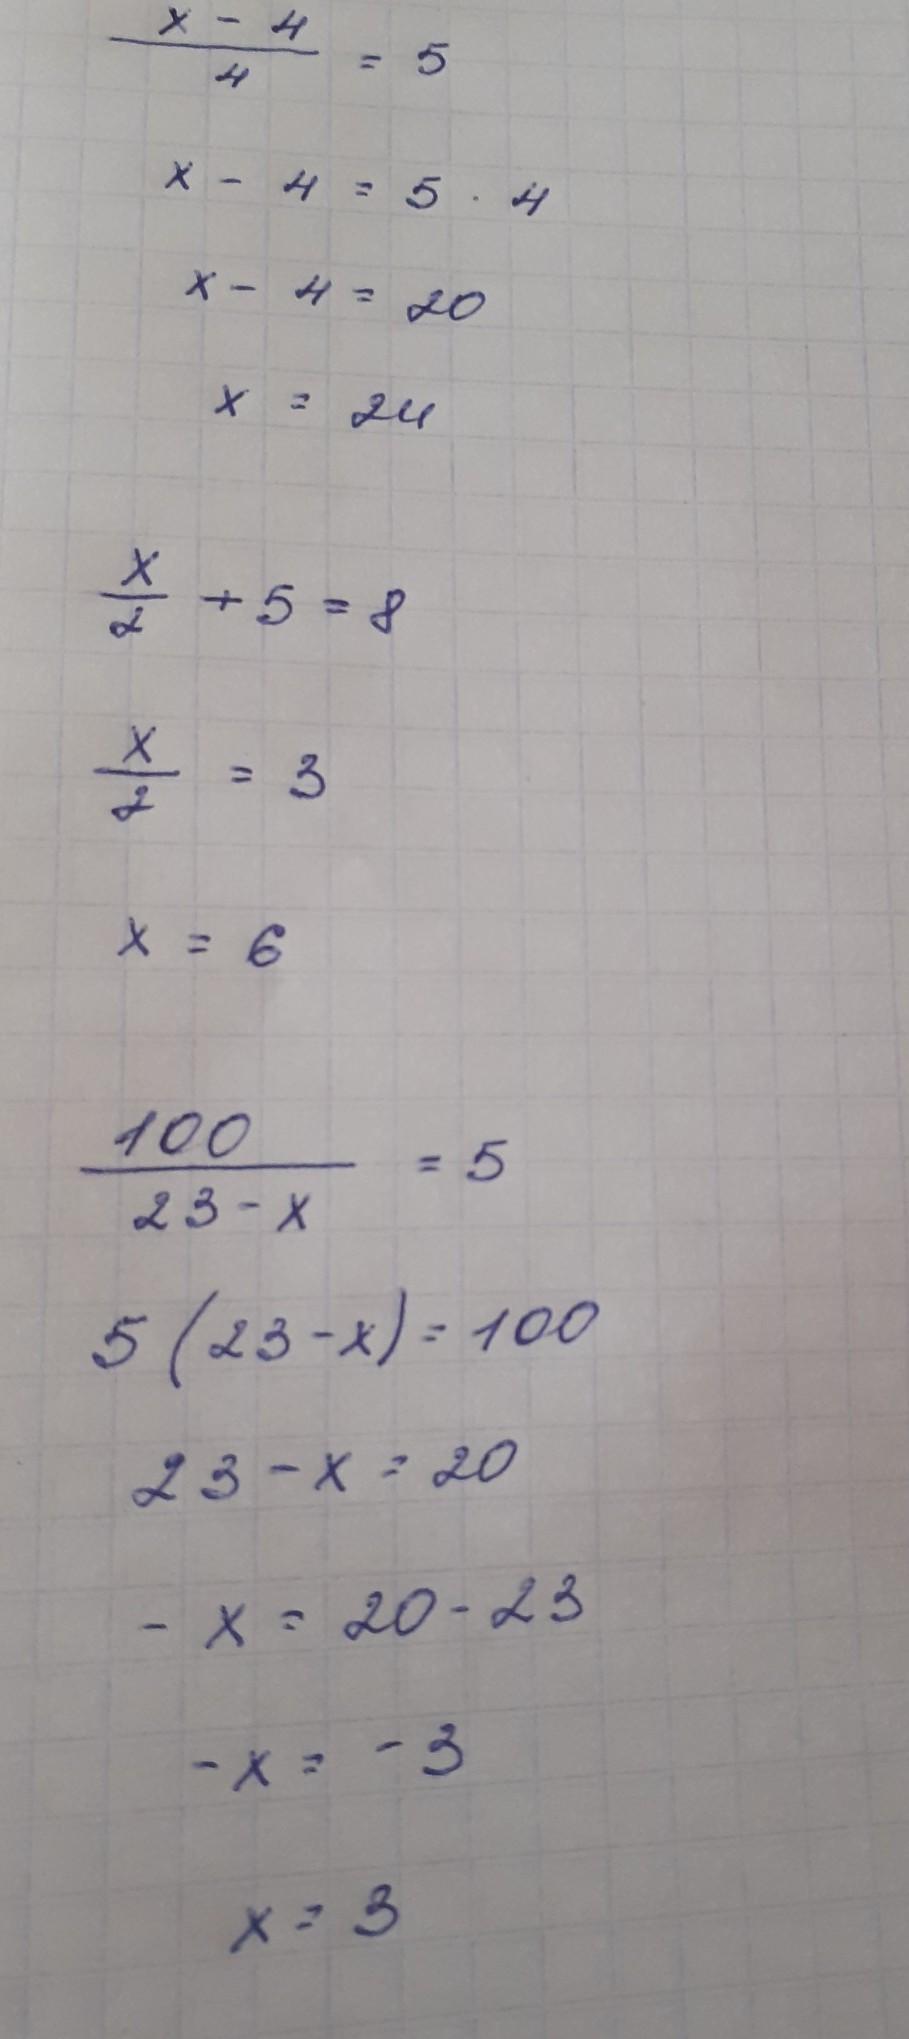 x - 4
4 = 5
x - 4 = 5 · 4
x - 4 = 20
x = 24
x/2 + 5 = 8
x/2 = 3
x = 6
100/23 - x = 5
5 (23 - x) = 100
23 - x = 20
- x = 20 - 23
- x = - 3
x = 3